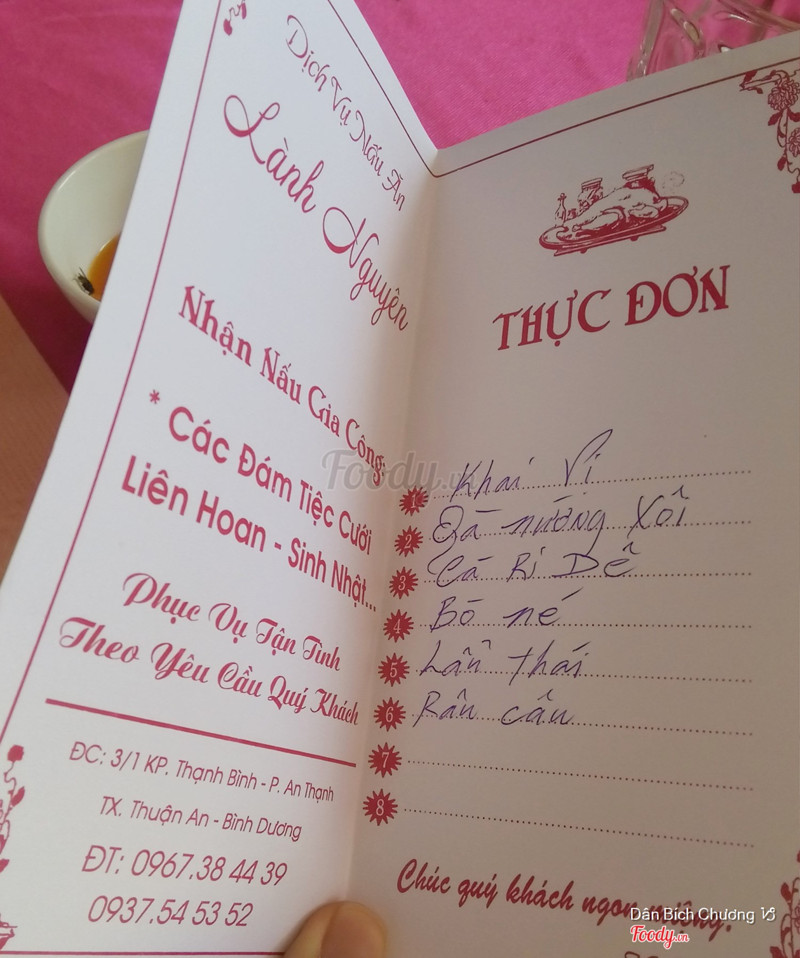 Dịch Vụ Nấu Ăn
Lành Nguyên
Nhận Nấu Gia Công:
* Các Đám Tiệc Cưới
Liên Hoan - Sinh Nhật...
Phục Vụ Tận Tình
Theo Yêu Cầu Quý Khách
ĐC: 3/1 KP. Thạnh Bình - P. An Thạnh
TX. Thuận An - Bình Dương
ĐT: 0967.38 44 39
0937.54 53 52
THỰC ĐƠN
1 Khai Vị
2 Gà nướng Xôi
3 Cà Ri Dê
4 Bò né
5 Lẩu thái
6 Rau câu
7
8
Chúc quý khách ngon miệng.
Foody.vn
Dân Bich Chương
Foody.vn